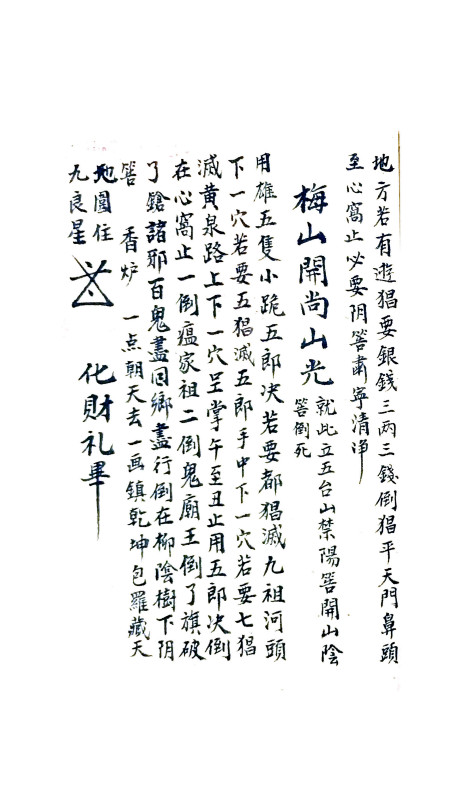 地方若有遊猖要銀錢三两三錢倒猖平天門鼻頭
至心窩止必要阴筶肅寧清净
梅山開尚山光
就此立五台山禁陽筶開山陰
筶倒死
用雄五隻小跪五郎决若要都猖滅九祖河頭
下一穴若要五猖滅五郎手中下一穴若要七猖
滅黄泉路上下一穴呈掌午至丑止用五郎决倒
在心窩止一倒瘟家祖二倒鬼廟王倒了旗破
了鎗諸邪百鬼盡回鄉盡行倒在柳陰樹下阴
筶 香炉 一点朝天去一画鎮乾坤包羅藏天
地圓住
九良星
化財礼畢